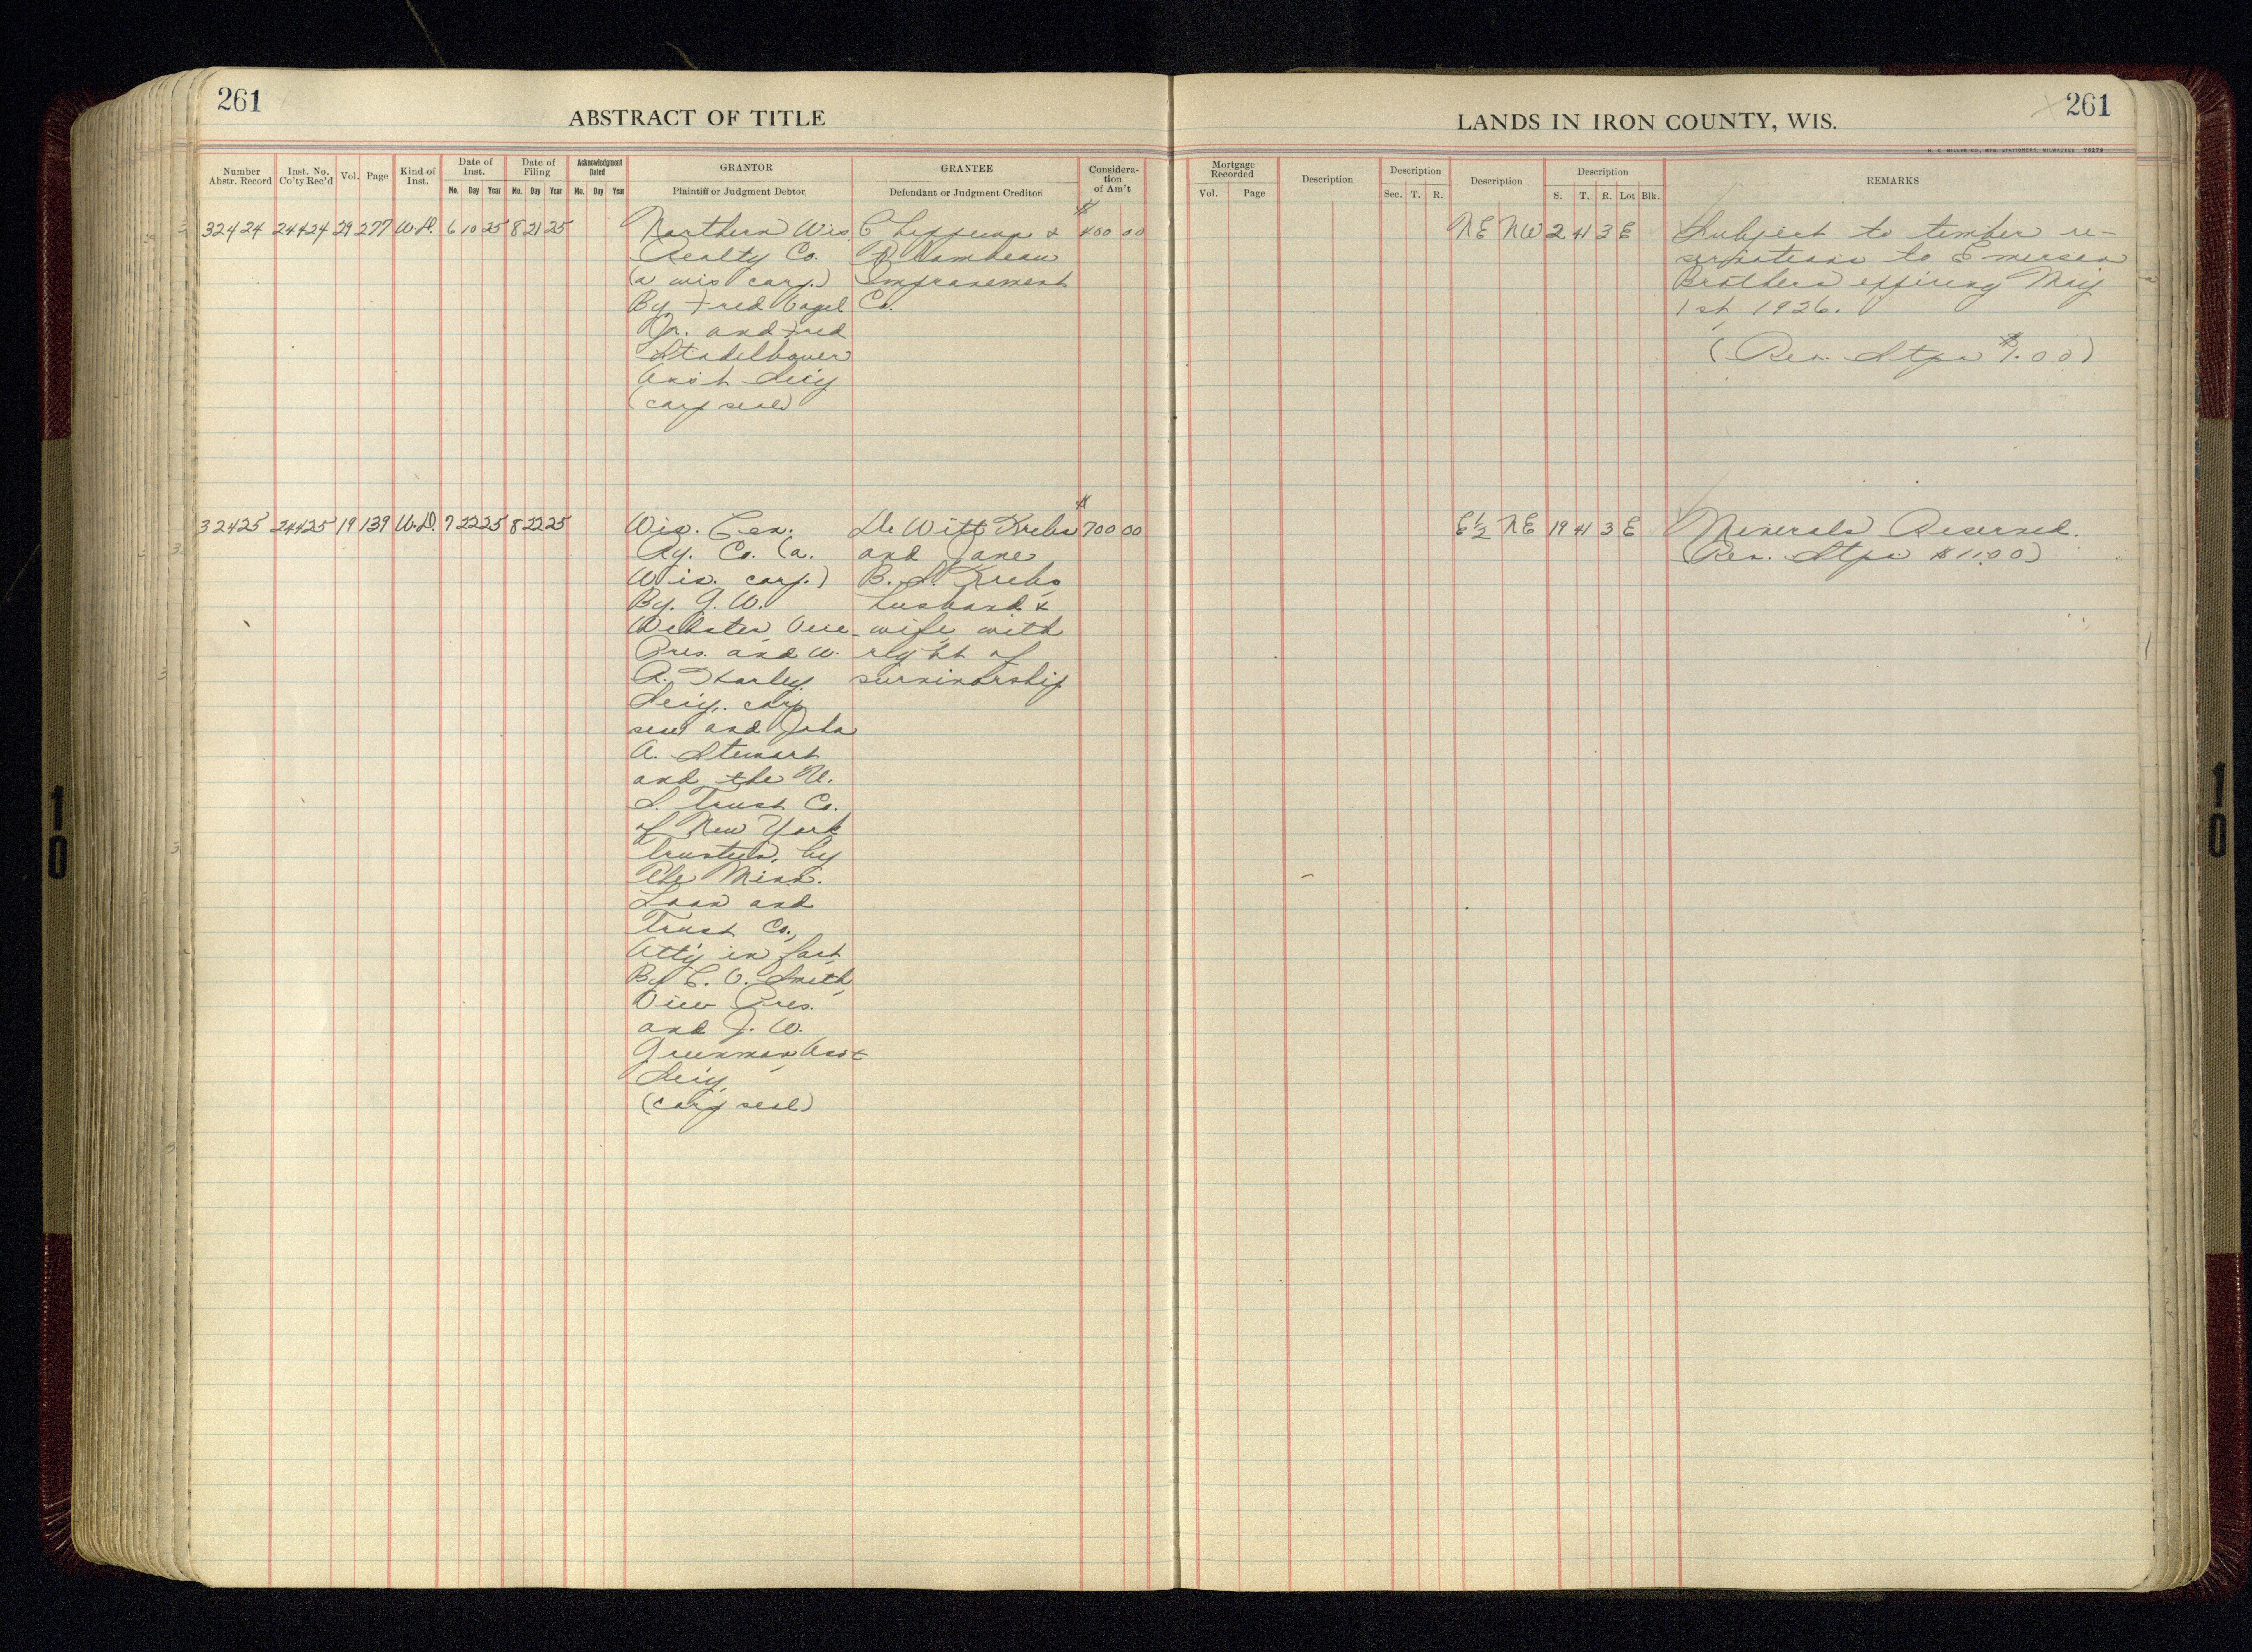 261
ABSTRACT OF TITLE
LANDS IN IRON COUNTY, WIS.
261
H. C. MILLER CO., MFG. STATIONERS, MILWAUKEE
Number Abstr. Record
Inst. No. Co'ty Rec'd
Vol.
Page
Kind of Inst.
Date of Inst.
Mo. Day Year
Date of Filing
Mo. Day Year
Acknowledgment Dated
Mo. Day Year
GRANTOR
Plaintiff or Judgment Debtor
GRANTEE
Defendant or Judgment Creditor
Considera-
tion
of Am't
Mortgage Recorded
Vol. Page
Description
Description
Sec. T. R.
Description
Description
S. T. R. Lot Blk.
REMARKS
32424 24424 29 277 W.D. 6 10 25 8 21 25
Northern Wis.
Realty Co.
(a wis corp.)
By Fred Vogel
Jr. and Fred
Stadelbauer
Ass't Sec'y
(corp seal)
Chippewa &
Flambeau
Improvement
Co.
$400 00
NE NW 2 41 3 E
Subject to timber re-
servations to Emerson
Brothers expiring May
1st, 1926.
(Rev. Stps $1.00)
32425 24425 19 139 W.D. 7 22 25 8 22 25
Wis. Cen.
Ry. Co. (a.
Wis. corp.)
By. G. W.
Webster Vice
Pres. and W.
R. Harley
Sec'y, corp
seal and John
A. Stewart
and the U.
S. Trust Co.
of New York
trustees, by
The Minn.
Loan and
Trust Co.,
Att'y in fact
By C. V. Smith,
Vice Pres.
and J. W.
Greenman, Asst
Sec'y,
(corp seal)
De Witt Krebs
and Jane
B. S. Krebs,
husband &
wife, with
right of
survivorship
$700 00
E½ NE 19 41 3 E
Minerals Reserved.
(Rev. Stps $1.00)
10
10